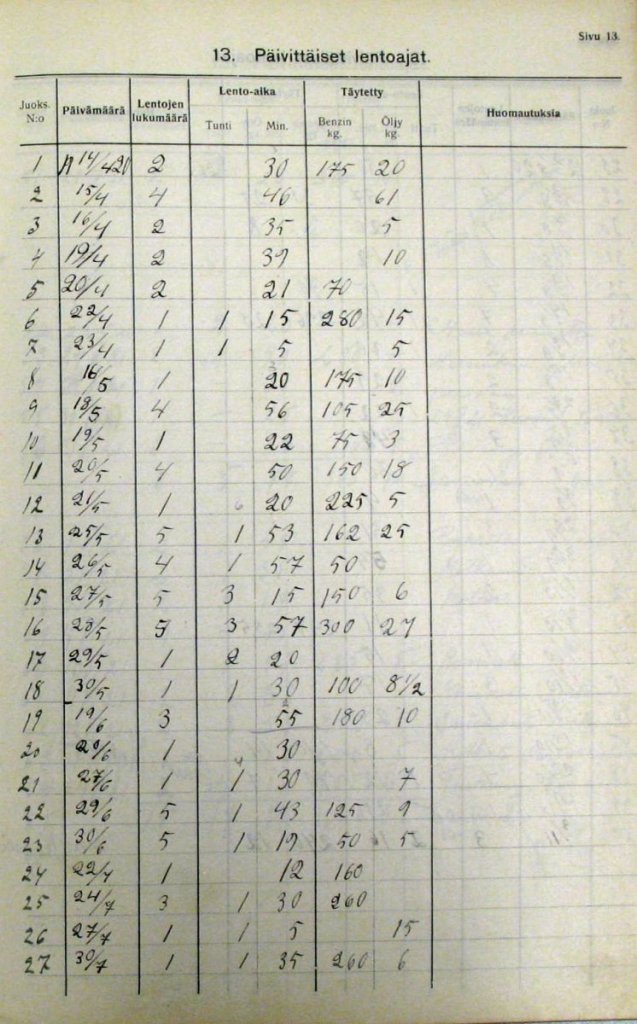 Sivu 13.
13. Päivittäiset lentoajat.
Juoks. N:o Päivämäärä Lentojen lukumäärä Lento-aika Täytetty Huomautuksia
Tunti Min. Benzin kg. Öljy kg.
1 14/4 20 2 30 175 20
2 15/4 4 46 61
3 16/4 2 35 5
4 19/4 2 39 10
5 20/4 2 21 70
6 22/4 1 1 15 280 15
7 23/4 1 1 5 5
8 16/5 1 20 175 10
9 18/5 4 56 105 25
10 19/5 1 22 75 3
11 20/5 4 50 150 18
12 21/5 1 20 225 5
13 25/5 5 1 53 162 25
14 26/5 4 1 57 50
15 27/5 5 3 15 150 6
16 28/5 5 3 57 300 27
17 29/5 1 2 20
18 30/5 1 1 30 100 8 1/2
19 19/6 3 55 180 10
20 20/6 1 30
21 27/6 1 1 30 7
22 29/6 5 1 43 125 9
23 30/6 5 1 19 50 5
24 22/7 1 12 160
25 24/7 3 1 30 260
26 27/7 1 1 5 15
27 30/7 1 1 35 260 6